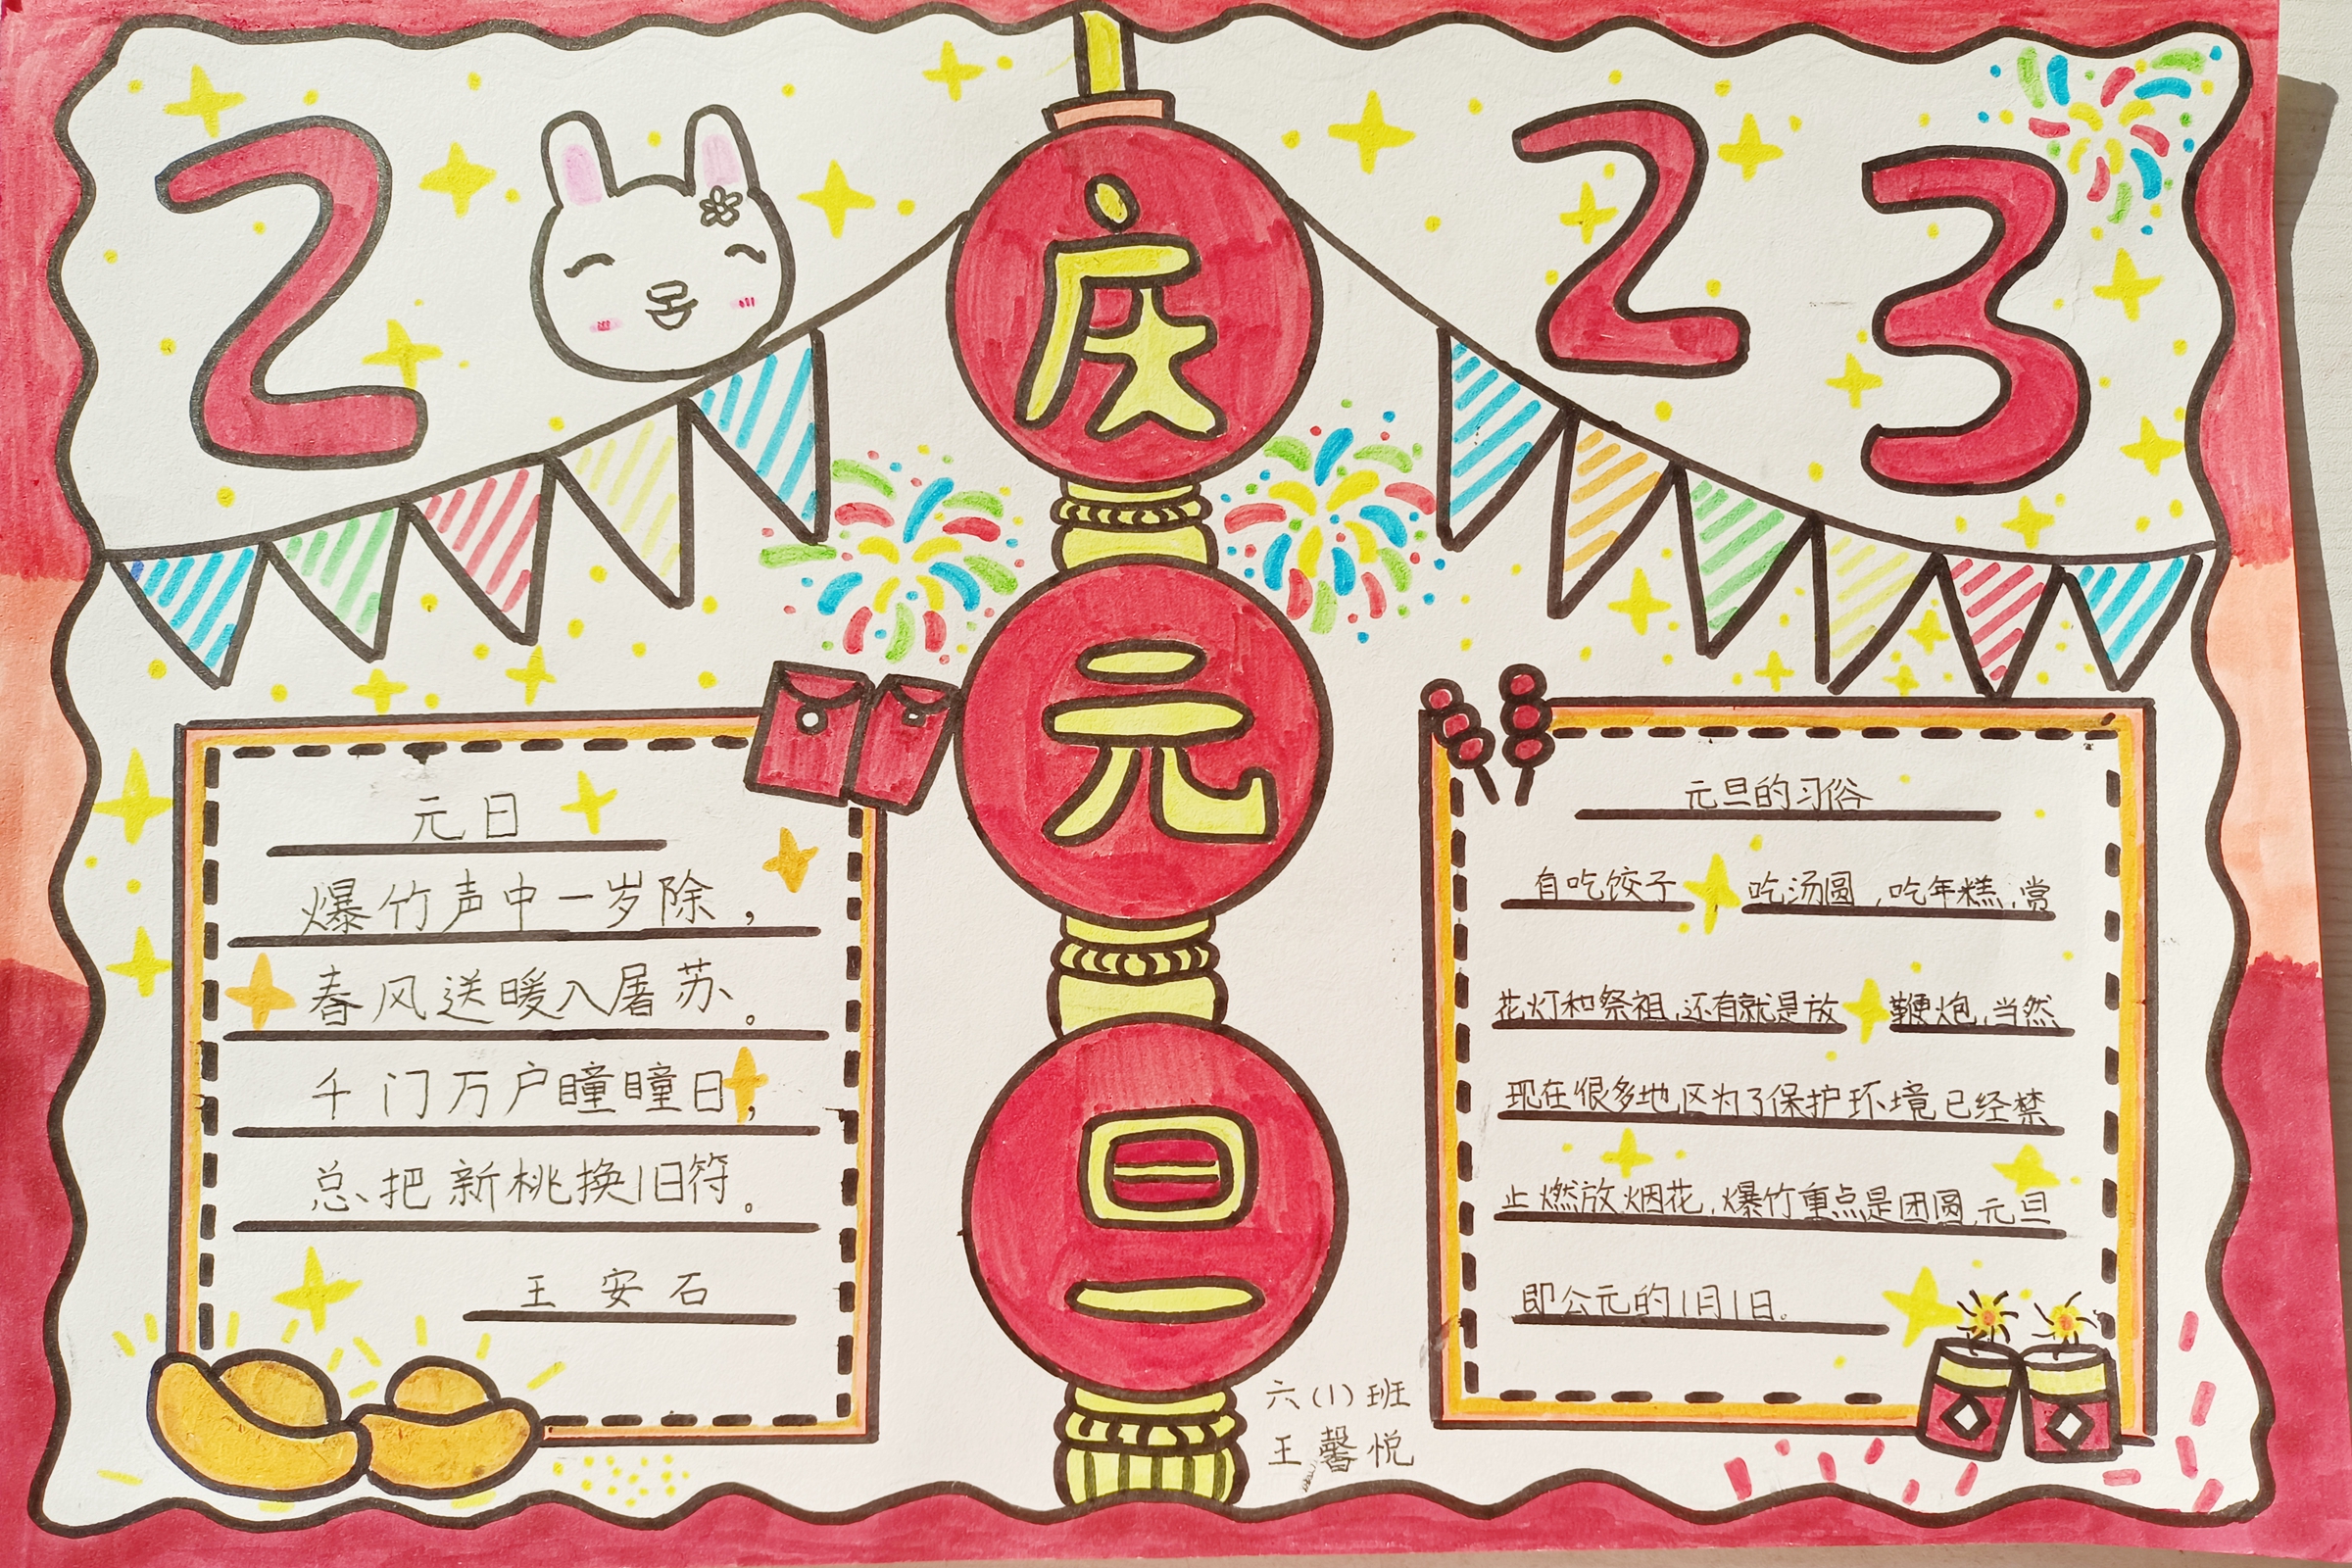 2 23
庆元旦
元日
爆竹声中一岁除，
春风送暖入屠苏。
千门万户瞳瞳日，
总把新桃换旧符。
王安石
元旦的习俗
有吃饺子 吃汤圆,吃年糕,赏
花灯和祭祖,还有就是放鞭炮,当然
现在很多地区为了保护环境已经禁
止燃放烟花,爆竹重点是团圆,元旦
即公元的1月1日。
六(1)班
王馨悦